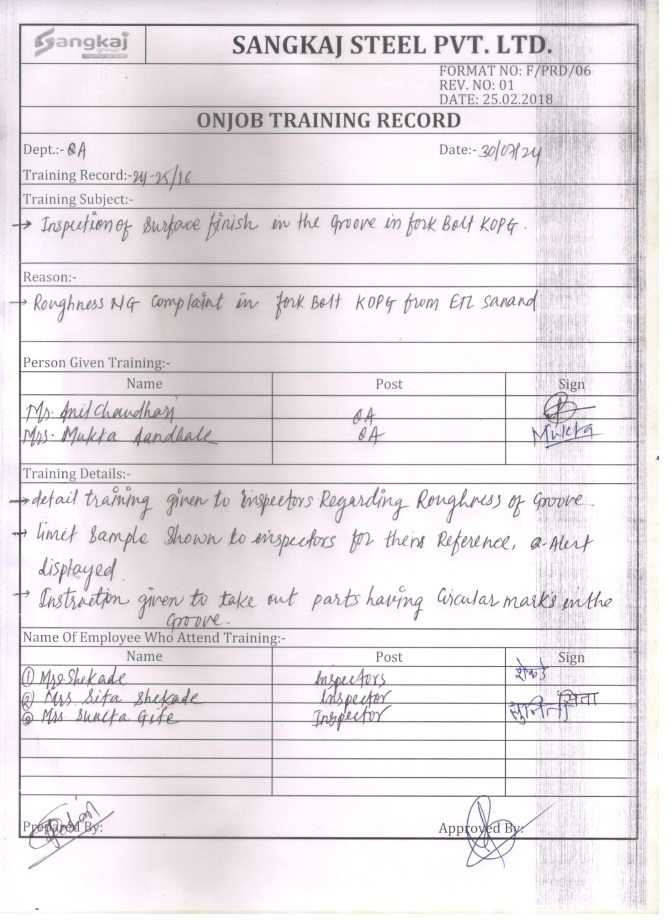 Sangkaj
group
SANGKAJ STEEL PVT. LTD.
FORMAT NO: F/PRD/06
REV. NO: 01
DATE: 25.02.2018
ONJOB TRAINING RECORD
Dept.:- QA Date:- 30/07/24
Training Record:- 24-25/16
Training Subject:-
→ Inspection of Surface finish in the Groove in fork Bolt KOPG.
Reason:-
→ Roughness NG Complaint in fork Bolt KOPG from ETL Sanand
Person Given Training:-
Name Post Sign
Mr. Anil Chaudhari QA
Mrs. Mukta Aandhale QA Mukta
Training Details:-
→ detail training given to inspectors Regarding Roughness of Groove
→ limit Sample Shown to inspectors for there Reference, Q-Alert
displayed
→ Instruction given to take out parts having Circular marks in the
Groove.
Name Of Employee Who Attend Training:-
Name Post Sign
① Mrs. Shekade Inspectors शेकडे
② Mrs Sita Shekade Inspector सिता
③ Mrs Sunita Gite Inspector सुनिता
Prepared By: Approved By: